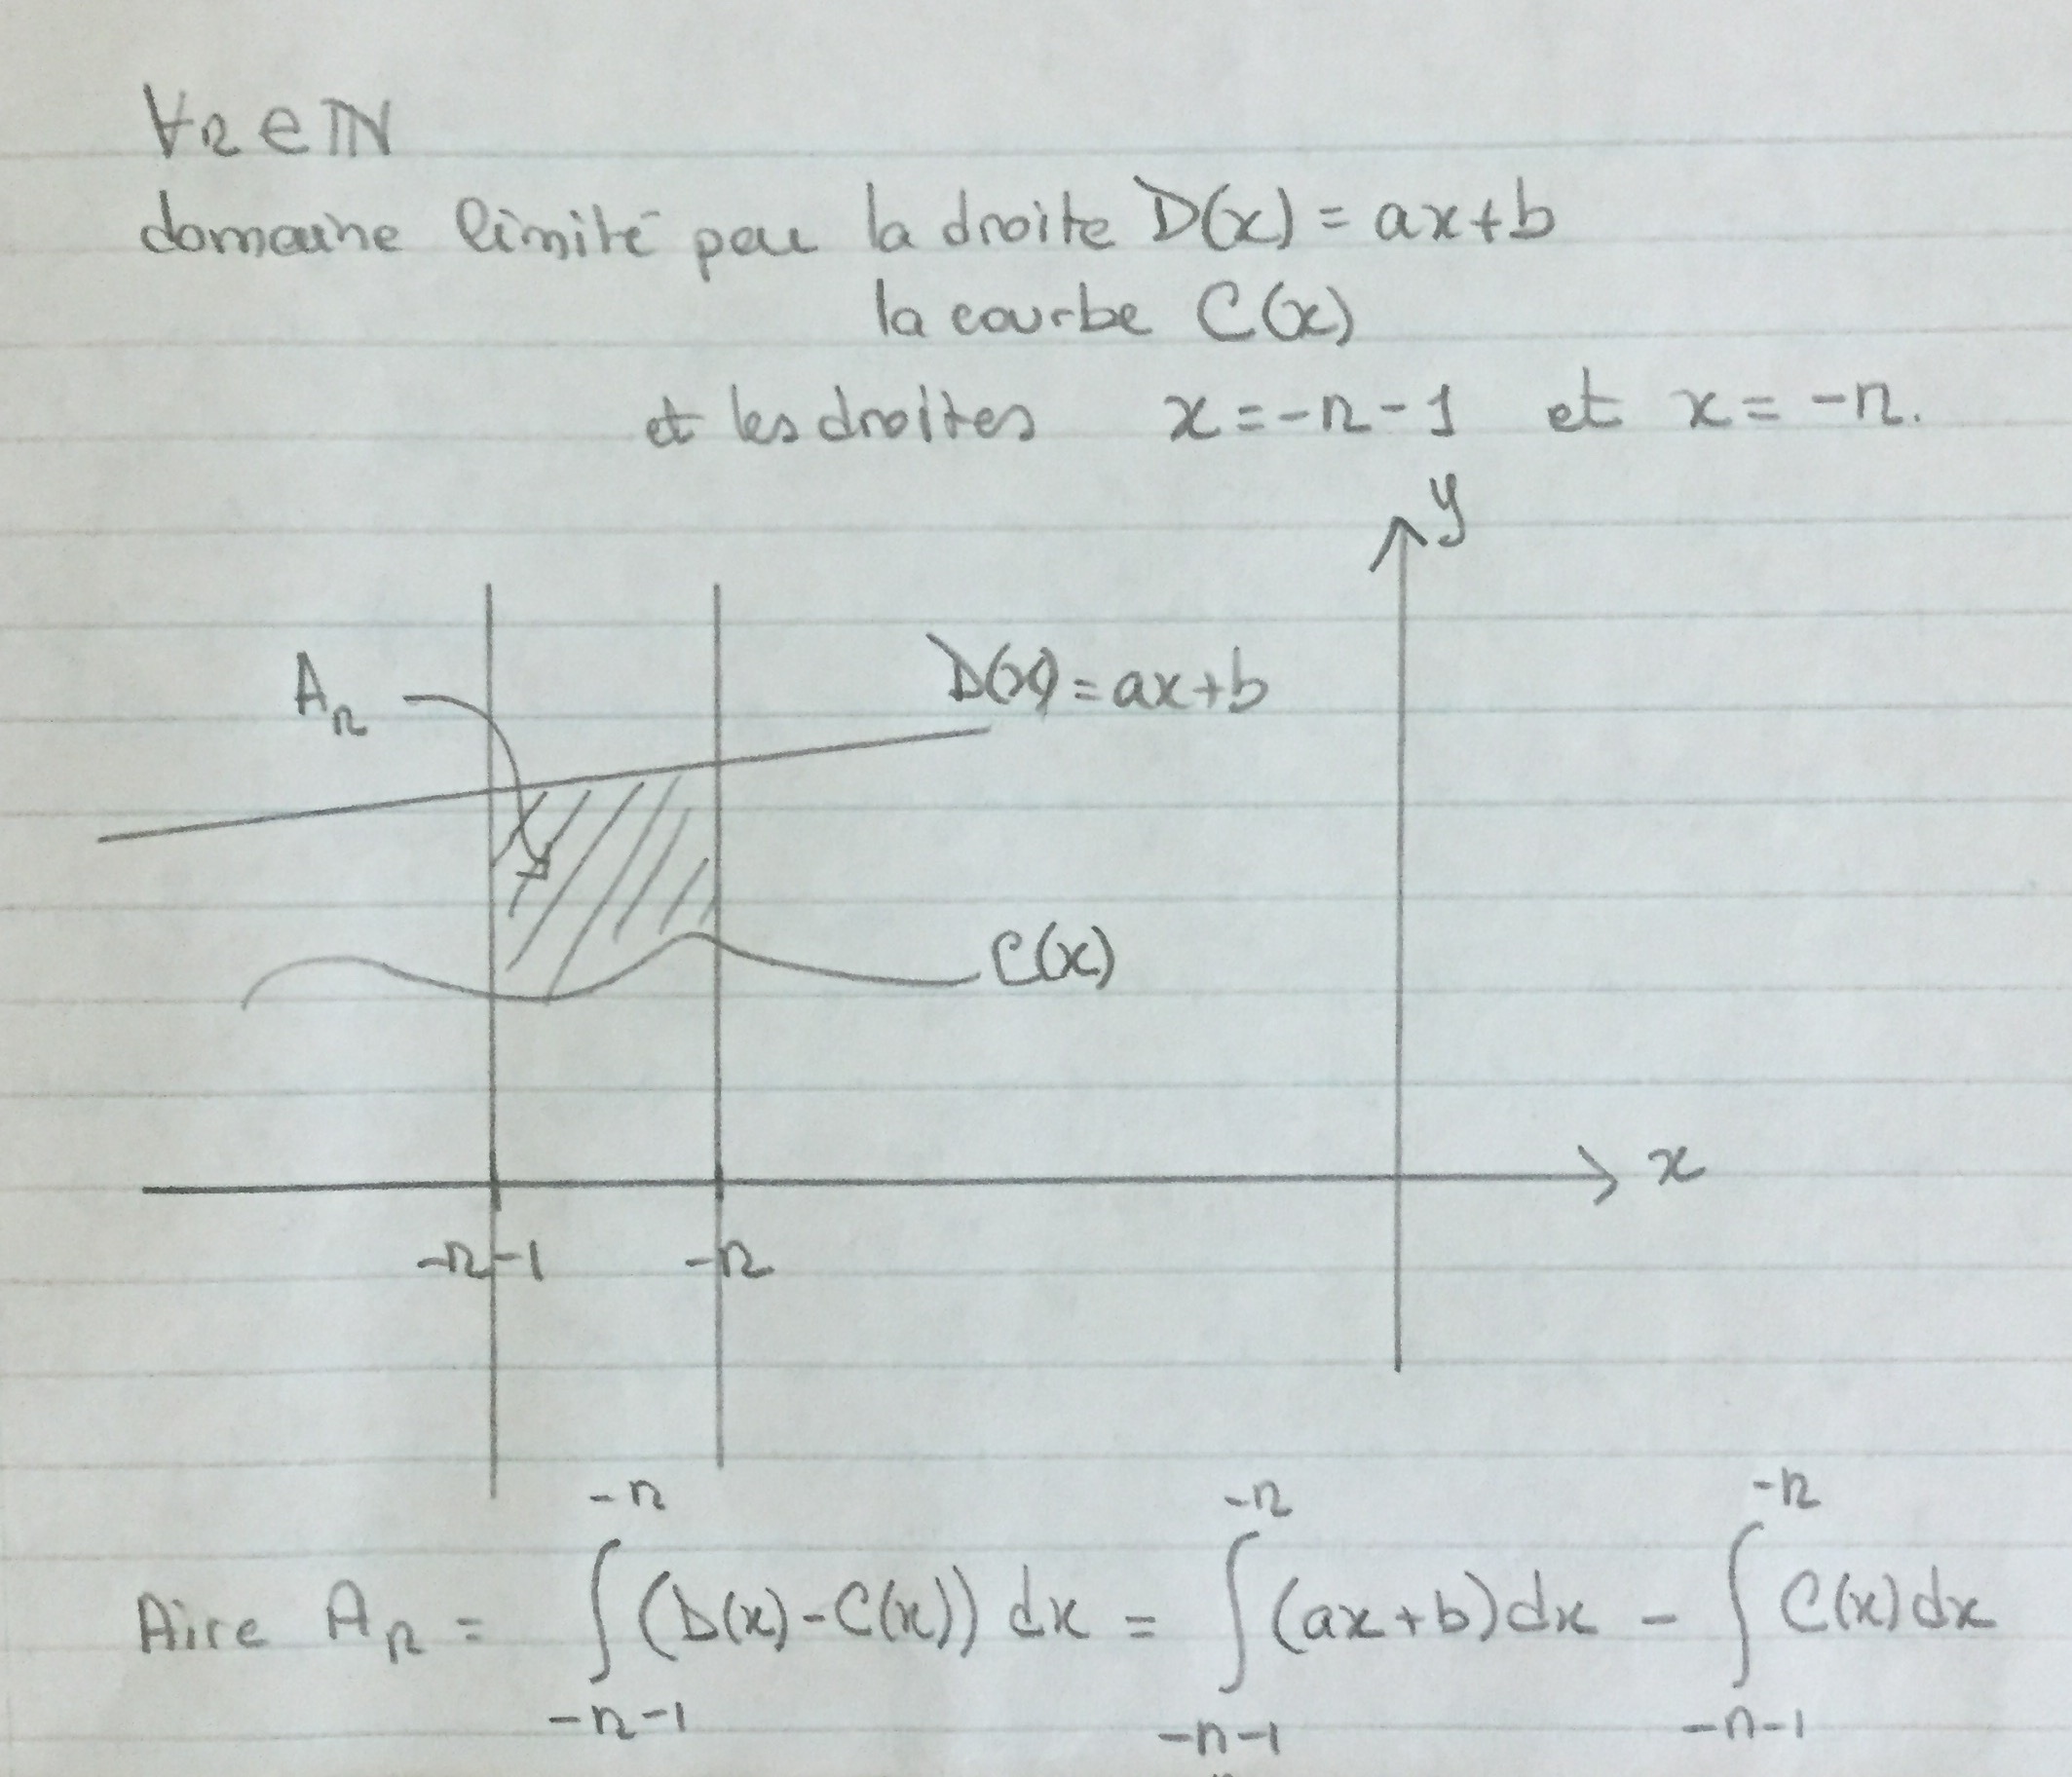 ∀n∈ℕ
domaine limité par la droite D(x) = ax+b
la courbe C(x)
et les droites x = -n-1 et x = -n.
y
D(x) = ax+b
Aₙ
C(x)
x
-n-1 -n
Aire Aₙ = ∫_{-n-1}^{-n} (D(x)-C(x)) dx = ∫_{-n-1}^{-n} (ax+b)dx - ∫_{-n-1}^{-n} C(x)dx